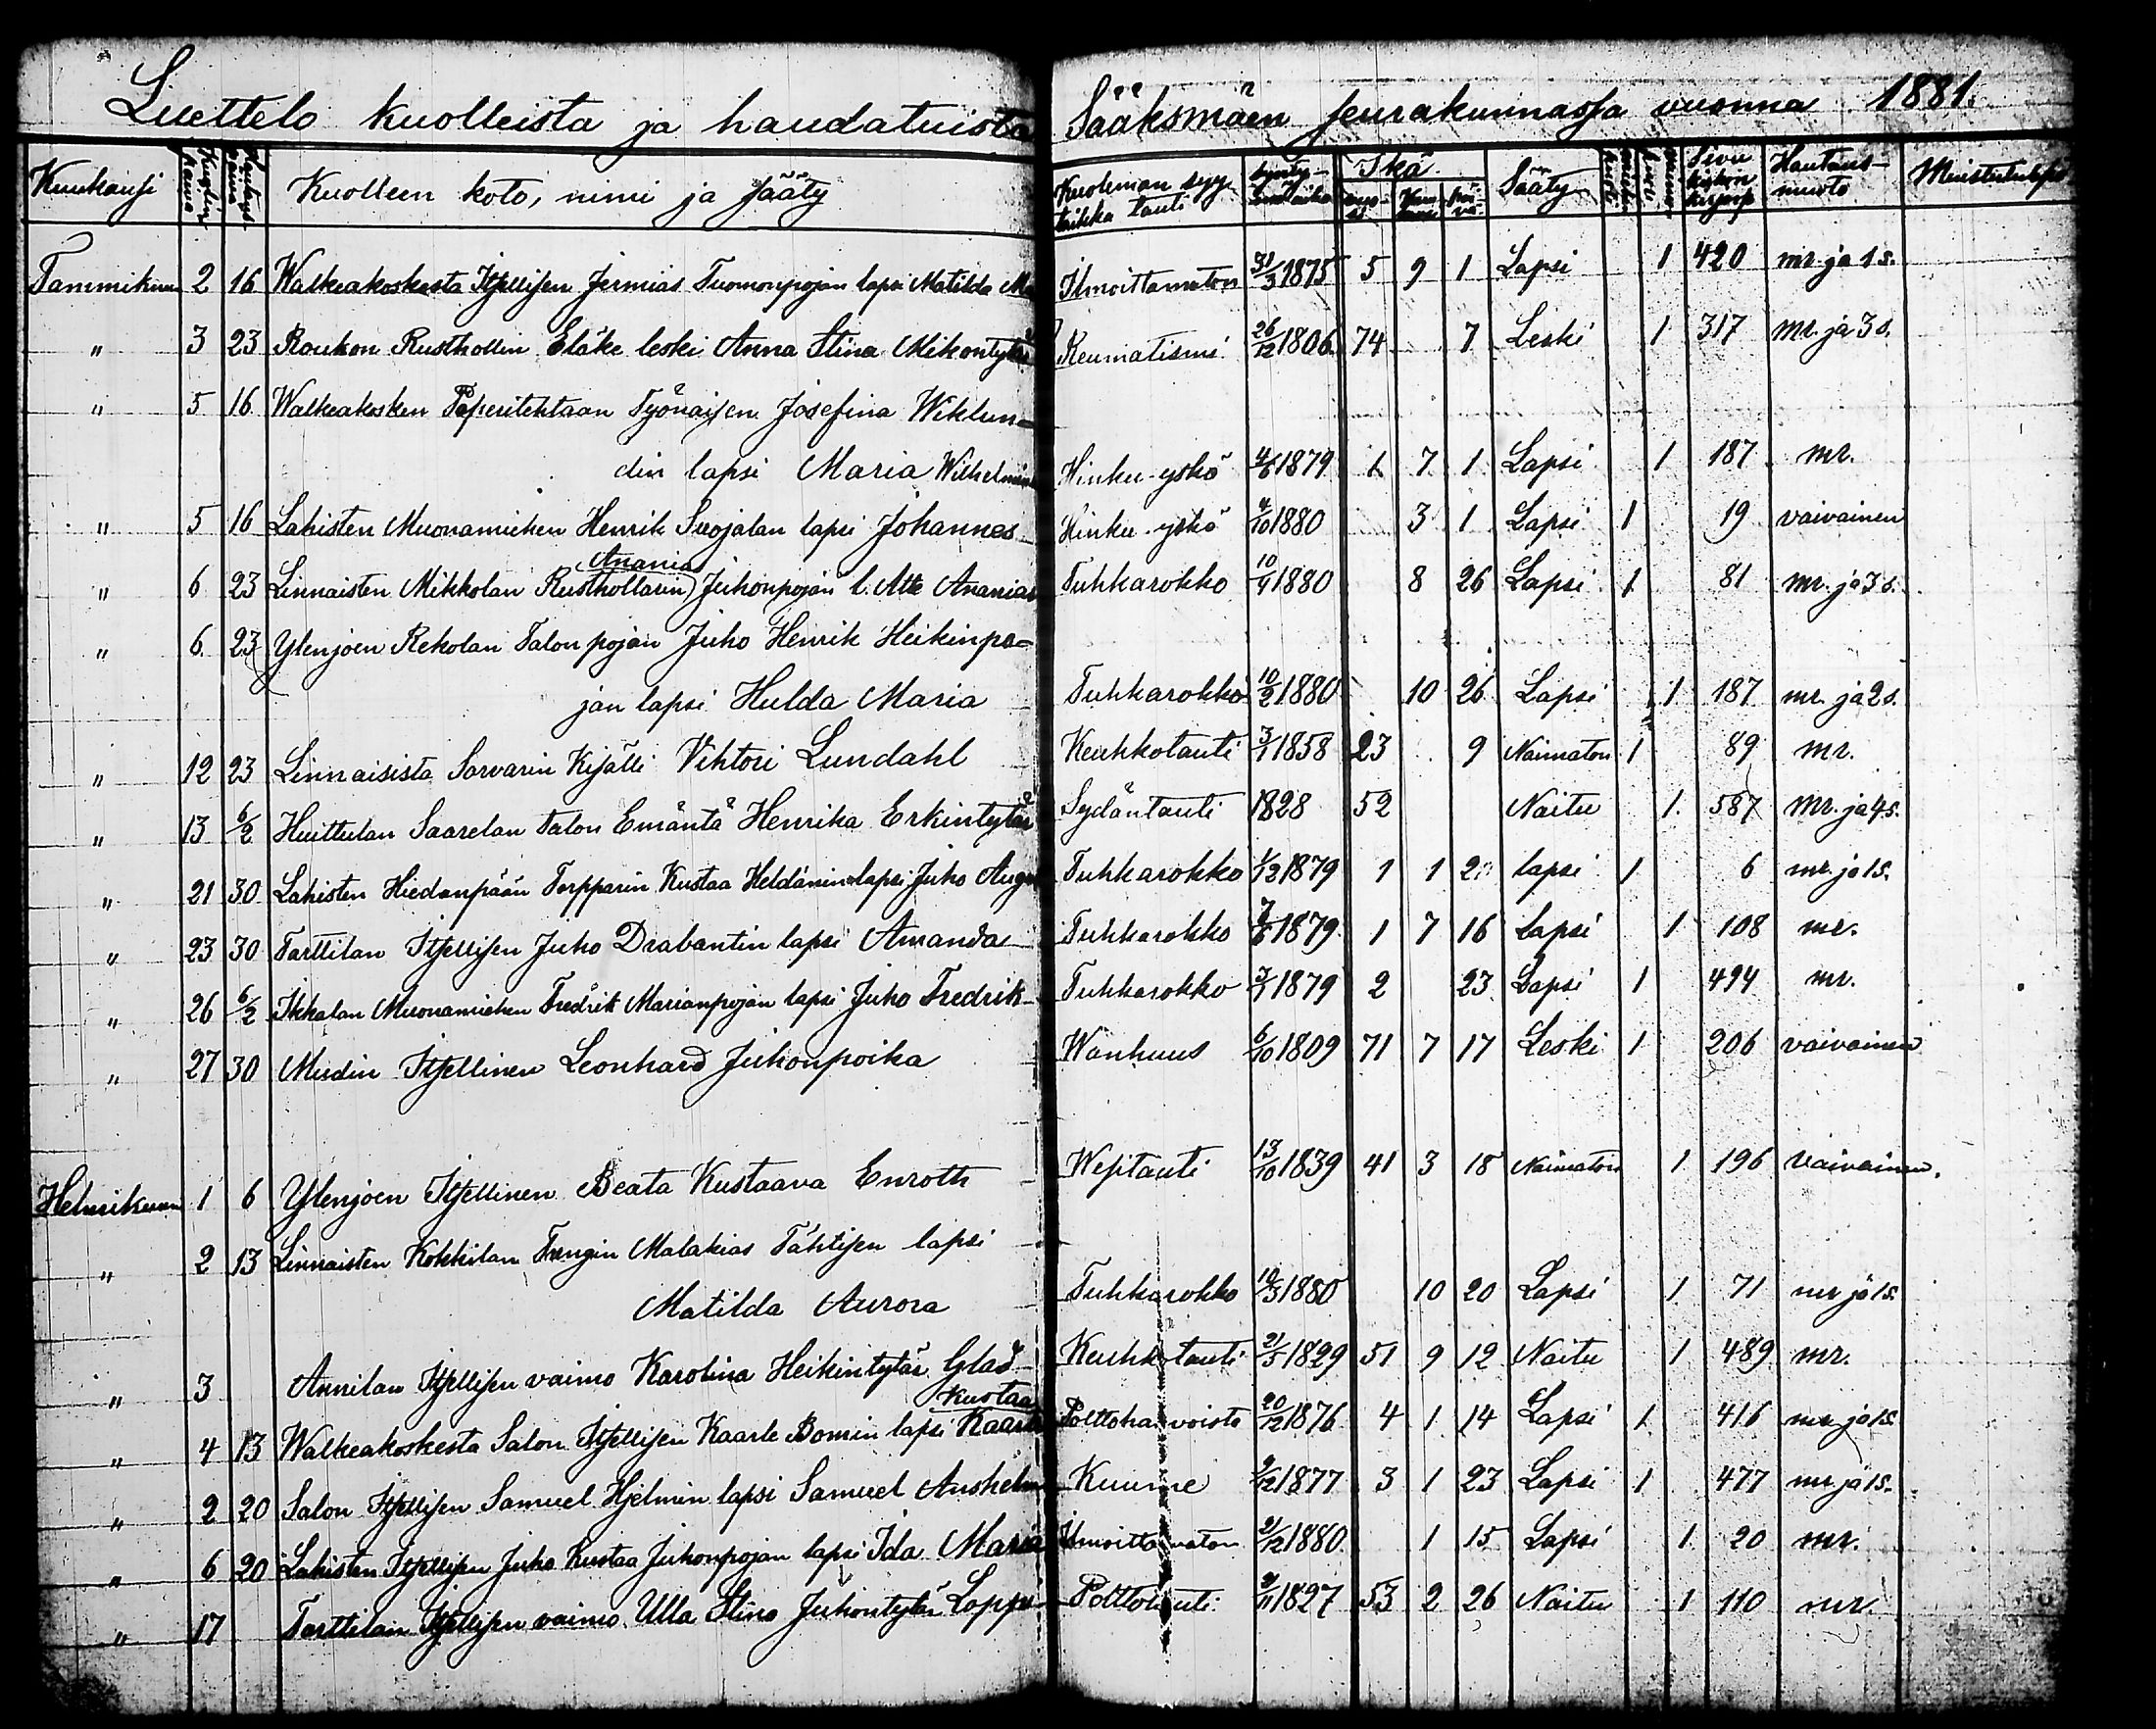 Luettelo kuolleista ja haudatuista Sääksmäen seurakunnassa vuonna 1881.
Kuukausi Kuolleen koto, nimi ja sääty Kuoleman syy taikka tauti Ikä Sääty Sivu Hautaus- Muistutuksia
Tammikuu 2 16 Walkeakoskesta Itsellisen Jermias Tuomonpojan lapsi Matilda Ilmoittamaton 31/3 1875 5 9 1 Lapsi 1 420 mr. ja 1 s.
" 3 23 Roukon Rusthollin Eläke leski Anna Stina Mikontytär Reumatismi 26/12 1806 74 7 Leski 1 317 mr. ja 3 s.
" 5 16 Walkeakosken Paperitehtaan Työnaisen Josefina Wiklun-
din lapsi Maria Wilhelmina Hinku-yskä 4/6 1879 1 7 1 Lapsi 1 187 mr.
" 5 16 Lahisten Muonamiehen Henrik Suojalan lapsi Johannes Hinku-yskä 4/10 1880 3 1 Lapsi 1 19 vaivainen
Ananias
" 6 23 Linnaisten Mikkolan Rusthollarin Juhonpojan l. Atte Ananias Tuhkarokko 10/4 1880 8 26 Lapsi 1 81 mr. ja 3 s.
" 6 23 Ylenjoen Rekolan Talonpojan Juho Henrik Heikinpo-
jan lapsi Hulda Maria Tuhkarokko 10/2 1880 10 26 Lapsi 1 187 mr. ja 2 s.
" 12 23 Linnaisista Sorvarin Kisälli Vihtori Lundahl Keuhkotauti 3/1 1858 23 9 Naimaton 1 89 mr.
" 13 6/2 Huittulan Saarelan Talon Emäntä Henrika Erkintytär Sydäntauti 1828 52 Naitu 1 587 mr. ja 4 s.
" 21 30 Lahisten Hiedanpään Torpparin Kustaa Heldánin lapsi Juho Tuhkarokko 1/12 1879 1 1 20 lapsi 1 6 mr. ja 1 s.
" 23 30 Tarttilan Itsellisen Juho Drabantin lapsi Amanda Tuhkarokko 7/6 1879 1 7 16 Lapsi 1 108 mr.
" 26 6/2 Ikkalan Muonamiehen Fredrik Marianpojan lapsi Juho Fredrik Tuhkarokko 3/1 1879 2 23 Lapsi 1 494 mr.
" 27 30 Mudin Itsellinen Leonhard Juhonpoika Wanhuus 6/10 1809 71 7 17 Leski 1 206 vaivainen
Helmikuu 1 6 Ylenjoen Itsellinen Beata Kustaava Enroth Wesitauti 13/10 1839 41 3 18 Naimaton 1 196 vaivainen.
" 2 13 Linnaisten Kokkilan Trengin Malakias Tähtisen lapsi
Matilda Aurora Tuhkarokko 12/3 1880 10 20 Lapsi 1 71 mr ja 1 s.
" 3 Annilan Itsellisen vaimo Karolina Heikintytär Glad Keuhkotauti 21/5 1829 51 9 12 Naitu 1 489 mr.
Kustaa
" 4 13 Walkeakoskesta Salon Itsellisen Kaarle Bomin lapsi Kaarle Polttohaavoista 20/12 1876 4 1 14 Lapsi 1 416 mr ja 1 s.
" 2 20 Salon Itsellisen Samuel Hjelmin lapsi Samuel Anshelm Kuume 9/12 1877 3 1 23 Lapsi 1 477 mr ja 1 s.
" 6 20 Lahisten Itsellisen Juho Kustaa Juhonpojan lapsi Ida Maria Ilmoittamaton 21/12 1880 1 15 Lapsi 1 20 mr.
" 17 Tarttilan Itsellisen vaimo Ulla Stina Juhontytär Polttotauti 1827 53 2 26 Naitu 1 110 mr.